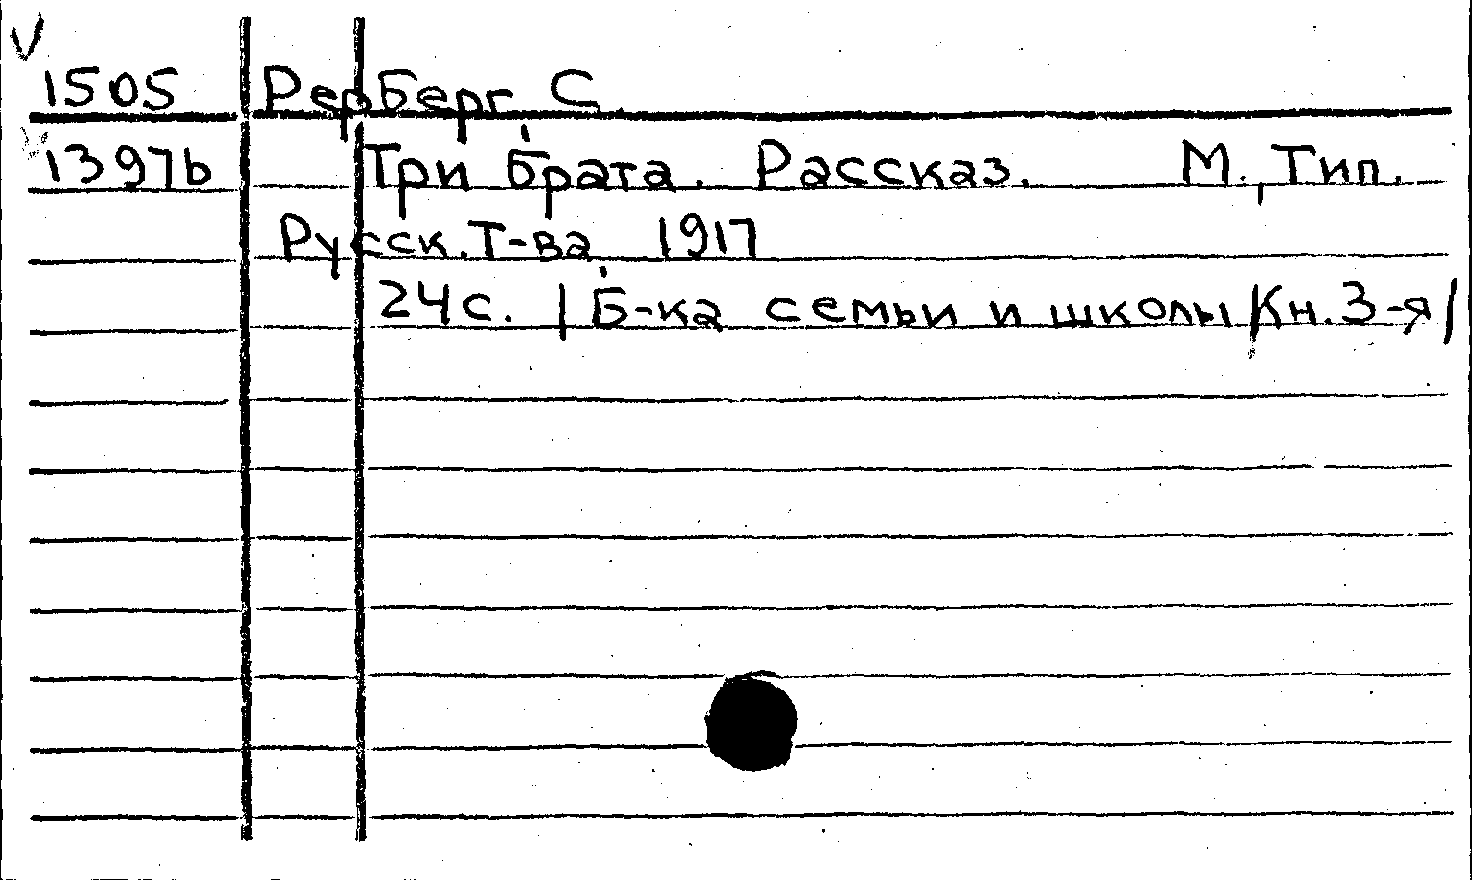 V
1505 Рерберг, С.
1397b Три брата. Рассказ. М., Тип.
Русск. Т-ва, 1917
24 с. /Б-ка семьи и школы/Кн. 3-я/